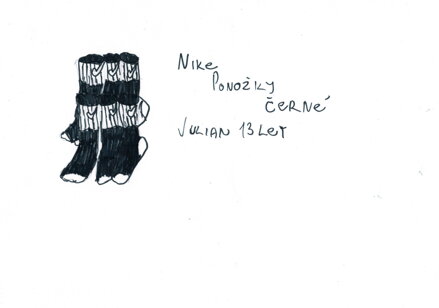 Nike
Ponožky
Černé
Julian 13 let